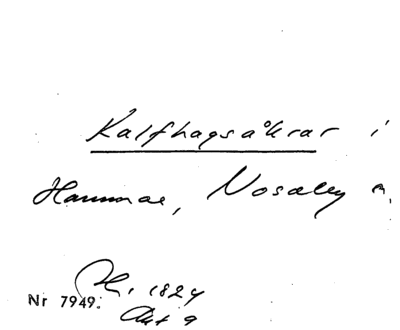 Kalfhagsåkrar i
Hammar, Nosaby sn.
Nr 7949. H. 1824
Akt 9